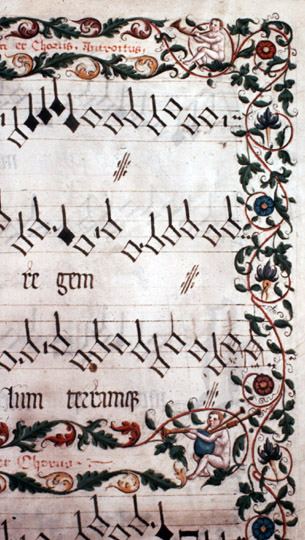 et Chorus. Introitus.
re gem
lum terramqȝ
et Chorus.